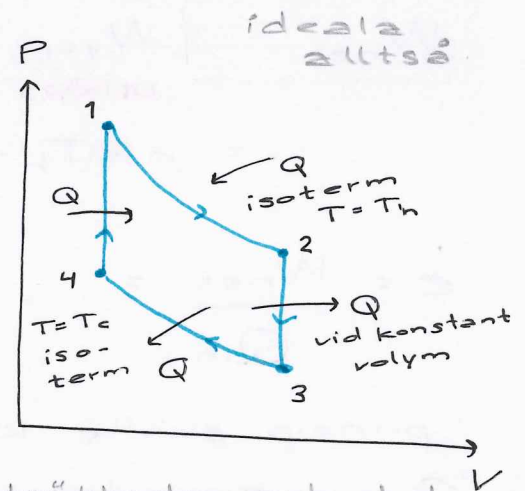 ideala
alltså
P
1
Q
isoterm
T = Th
Q
2
4
T = Tc
iso-
term
Q
Q
vid konstant
volym
3
V